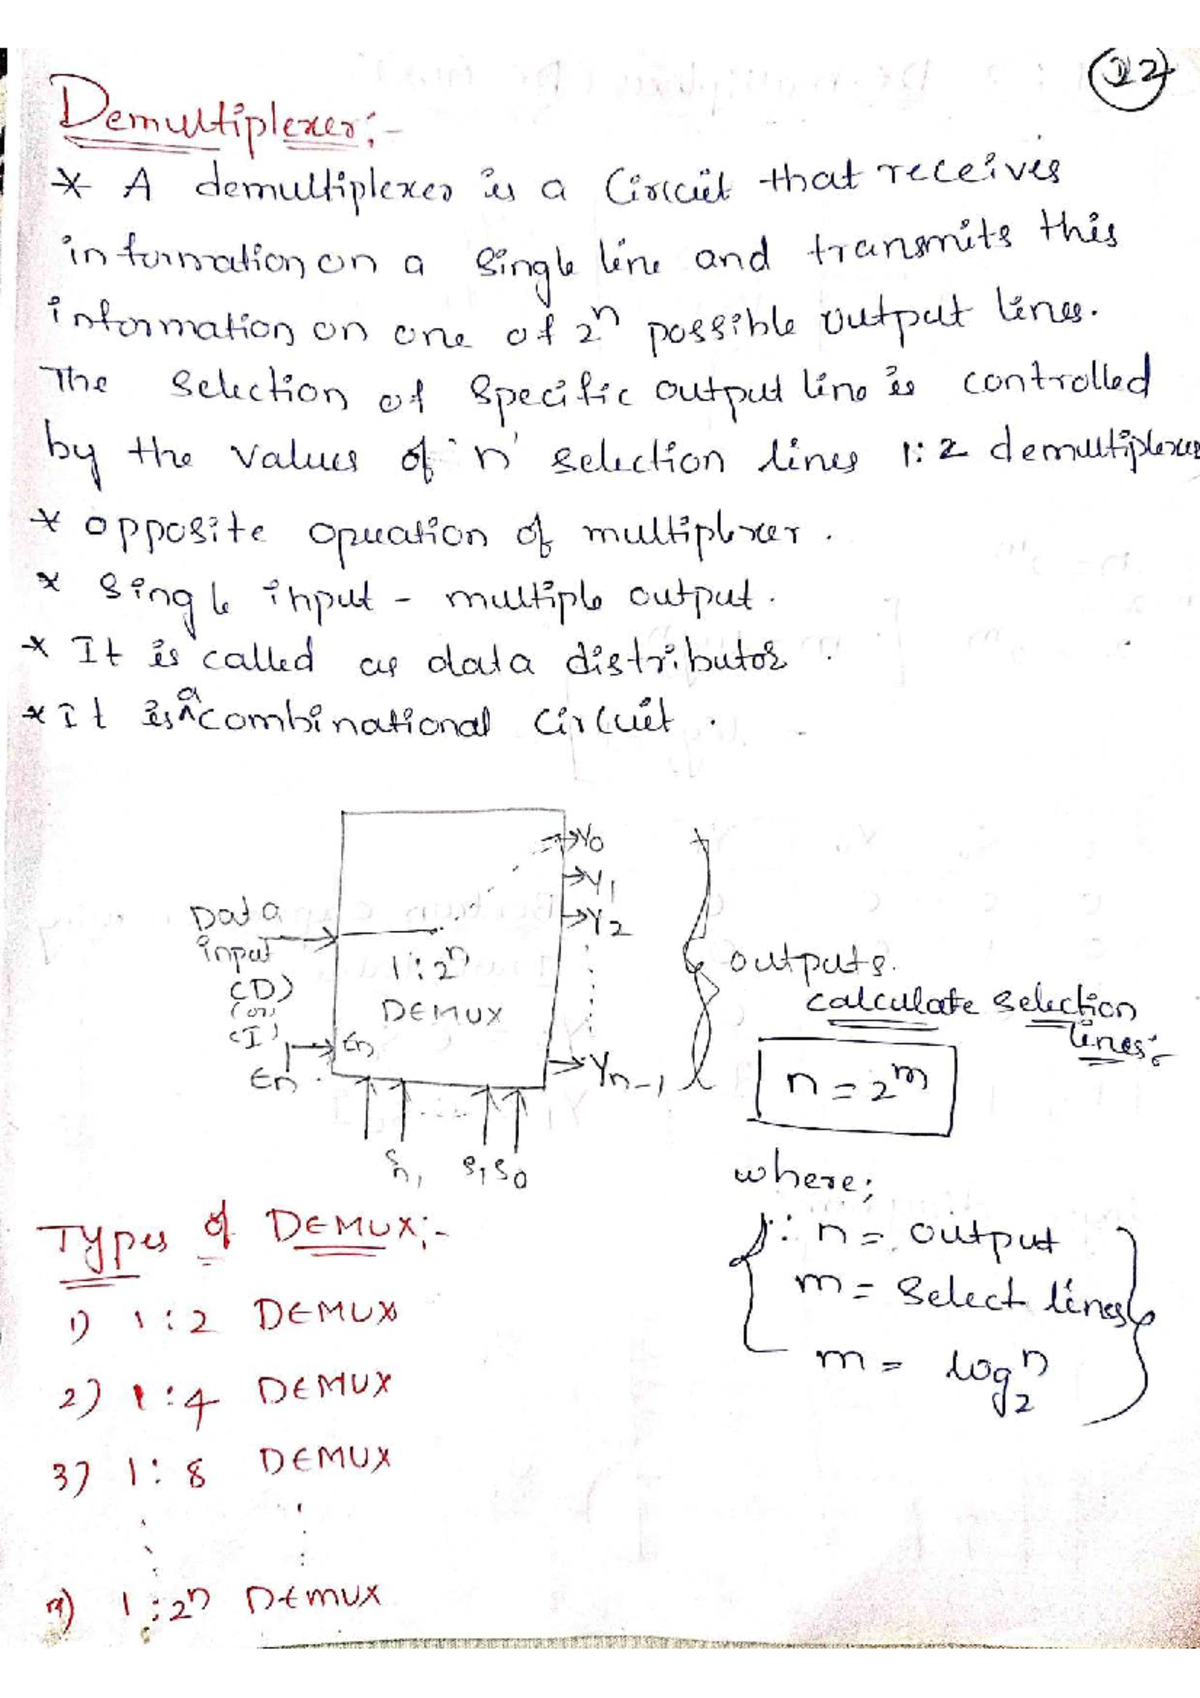 22
Demultiplexer:-
* A demultiplexer is a Circuit that receives
information on a Single line and transmits this
information on one of 2ⁿ possible output lines.
The Selection of Specific output line is controlled
by the values of 'n' selection lines 1:2 demultiplexer
* opposite operation of multiplexer.
* Single input - multiple output.
* It is called as data distributor.
* It is a combinational circuit.
Data input (D) (or) (I)
En
En
1:2ⁿ
DEMUX
Y0
Y1
Y2
Yn-1
S1 S0
outputs.
calculate selection
lines:-
n = 2ᵐ
where;
∴ n = output
m = Select lines
m = log₂ⁿ
Types of DEMUX:-
1) 1:2 DEMUX
2) 1:4 DEMUX
3) 1:8 DEMUX
n) 1:2ⁿ DEMUX